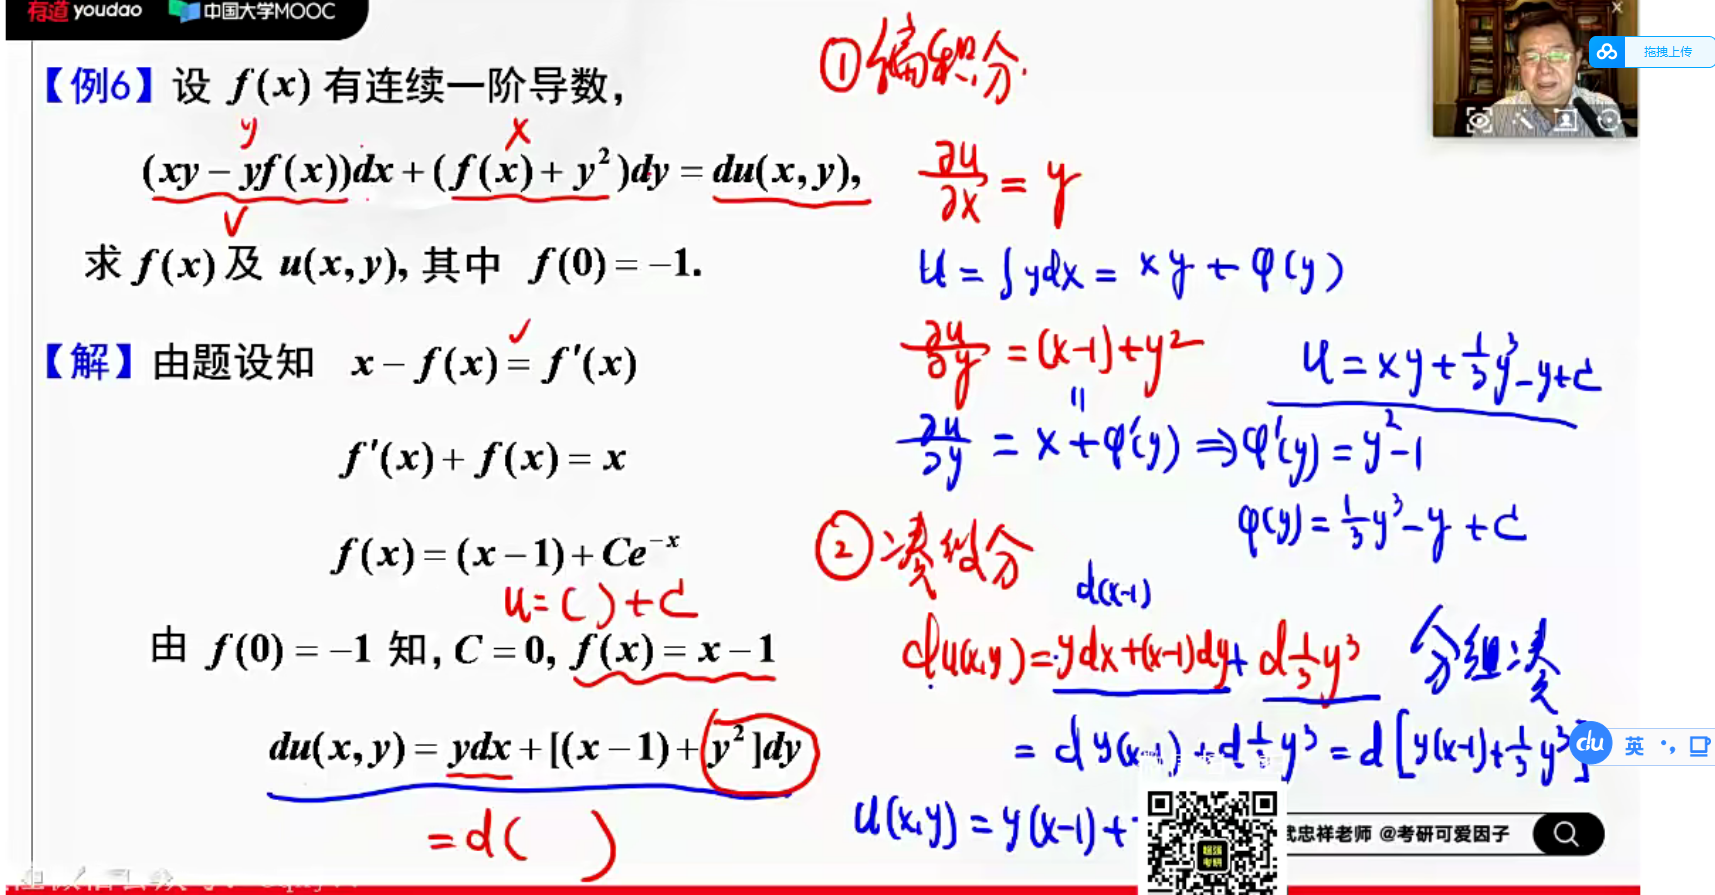 有道 youdao 中国大学MOOC
拖拽上传
【例6】设 f(x) 有连续一阶导数,
y x
(xy − yf(x))dx + (f(x) + y²)dy = du(x, y),
求 f(x) 及 u(x, y), 其中 f(0) = −1.
【解】由题设知 x − f(x) = f′(x)
f′(x) + f(x) = x
f(x) = (x − 1) + Ce⁻ˣ
u = ( ) + C
由 f(0) = −1 知, C = 0, f(x) = x − 1
du(x, y) = ydx + [(x − 1) + y²]dy
= d( )
① 偏积分.
∂u/∂x = y
u = ∫ydx = xy + φ(y)
∂u/∂y = (x-1) + y²
u = xy + 1/3 y³ - y + C
∂u/∂y = x + φ′(y) ⇒ φ′(y) = y² - 1
φ(y) = 1/3 y³ - y + C
② 凑微分
d(x-1)
du(x,y) = ydx + (x-1)dy + d 1/3 y³ 分组凑
= d y(x-1) + d 1/3 y³ = d[y(x-1) + 1/3 y³]
u(x,y) = y(x-1) +
du 英
武忠祥老师 @考研可爱因子